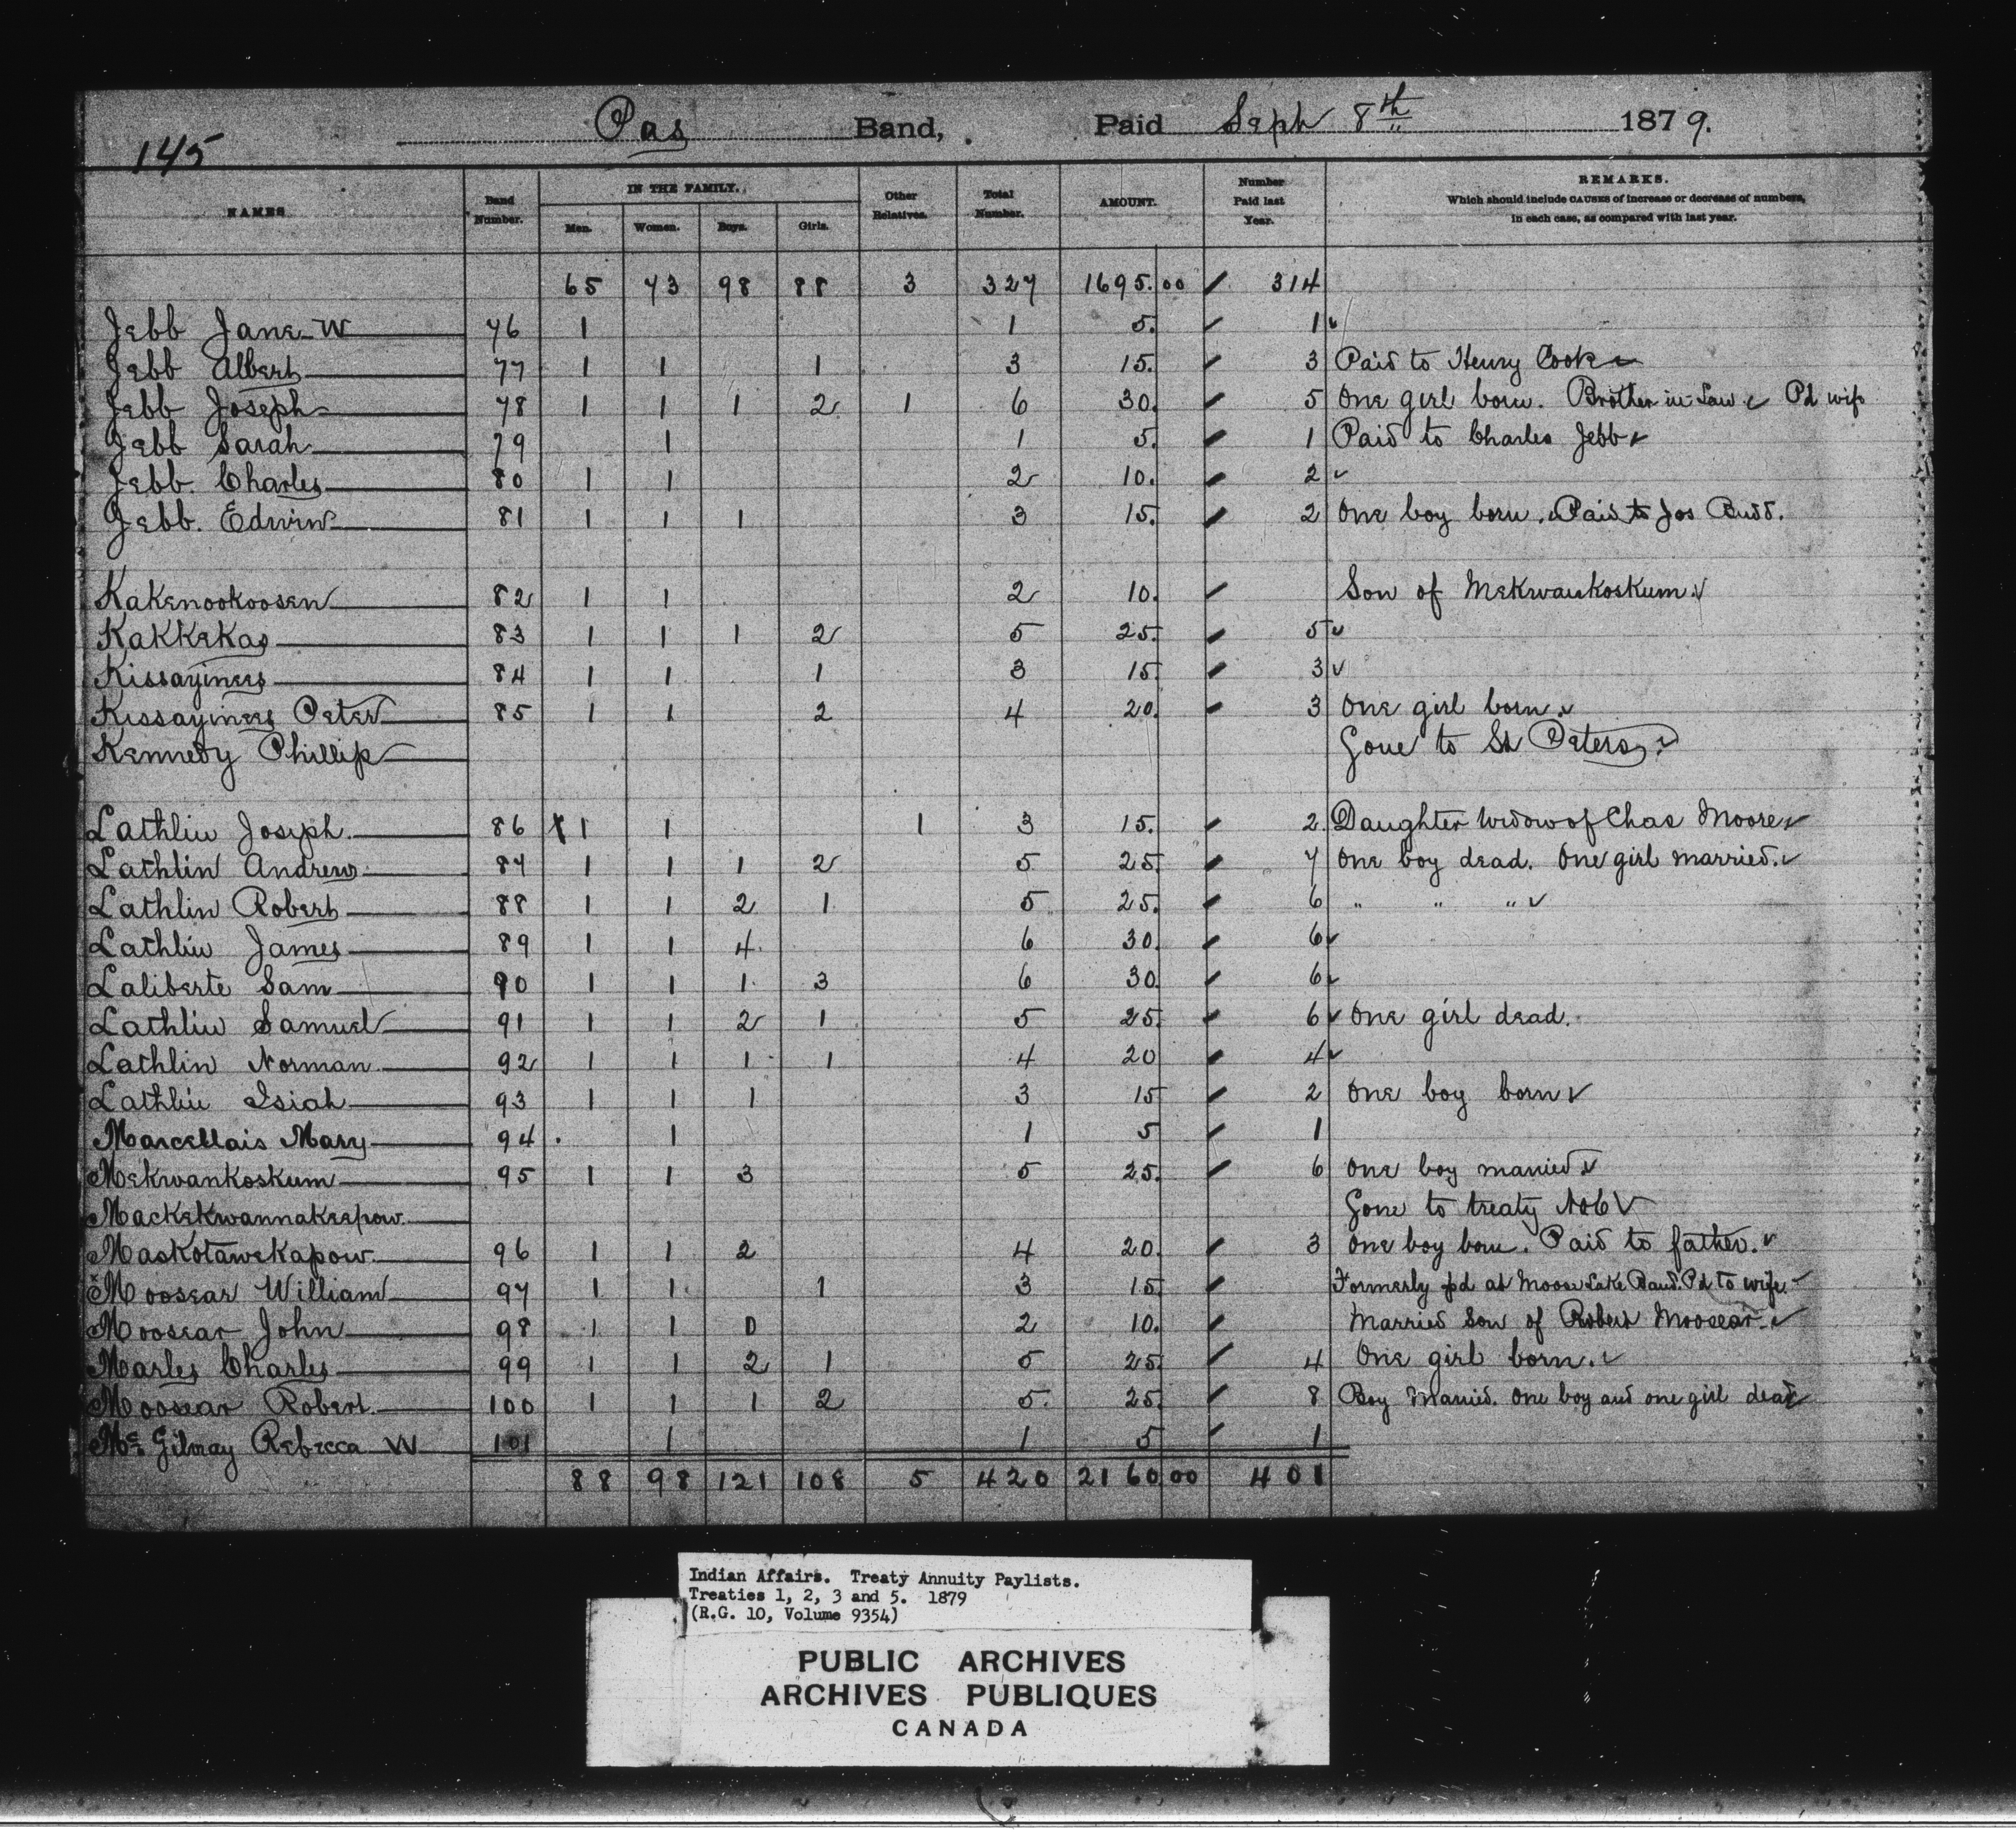 145 Pas Band, Paid Seph 8th 1879.
NAMES Band Number. IN THE FAMILY. Men. Women. Boys. Girls. Other Relatives. Total Number. AMOUNT. Number Paid last Year. REMARKS. Which should include CAUSES of increase or decrease of numbers, in each case, as compared with last year.
65 73 98 88 3 327 1695.00 314
Jebb Jane W 76 1 1 5. 1
Jebb Albert 77 1 1 1 3 15. 3 Paid to Henry Cook
Jebb Joseph 78 1 1 1 2 1 6 30. 5 One girl born. Brother in Law Pd wife
Jebb Sarah 79 1 1 5. 1 Paid to Charles Jebb
Jebb. Charles 80 1 1 2 10. 2
Jebb. Edwin 81 1 1 1 3 15. 2 One boy born. Paid to Jos Budd.
Kakenookoosen 82 1 1 2 10. Son of Mekwankoskum.
Kakkekas 83 1 1 1 2 5 25. 5
Kissayinees 84 1 1 1 3 15 3
Kissayinees Peter 85 1 1 2 4 20. 3 One girl born.
Kennedy Phillip Gone to St Peters.
Lathlin Joseph. 86 1 1 1 3 15. 2. Daughter Widow of Chas Moore
Lathlin Andrew 87 1 1 1 2 5 25. 7 One boy dead. One girl married.
Lathlin Robert 88 1 1 2 1 5 25. 6 " " "
Lathlin James 89 1 1 4. 6 30. 6
Laliberte Sam 90 1 1 1. 3 6 30. 6
Lathlin Samuel 91 1 1 2 1 5 25. 6 One girl dead.
Lathlin Norman 92 1 1 1 1 4 20 4
Lathlin Isiah 93 1 1 1 3 15 2 One boy born
Marcellais Mary 94. 1 1 5 1
Mekwankoskum 95 1 1 3 5 25. 6 One boy married
Mackekwannakeepow. Gone to treaty No 6
Maskotawekapow. 96 1 1 2 4 20. 3 One boy born. Paid to father.
Moosear William 97 1 1 1 3 15. Formerly pd at Moose Lake Band. Pd to wife.
Moosear John 98 1 1 0 2 10. Married Son of Robert Moosear.
Marles Charles 99 1 1 2 1 5 25. 4 One girl born.
Moosear Robert. 100 1 1 1 2 5. 25. 8 Boy Married. One boy and one girl dead
Mc Gilvray Rebecca W 101 1 1 5 1
88 98 121 108 5 420 2160 00 401
Indian Affairs. Treaty Annuity Paylists.
Treaties 1, 2, 3 and 5. 1879
(R.G. 10, Volume 9354)
PUBLIC ARCHIVES
ARCHIVES PUBLIQUES
CANADA